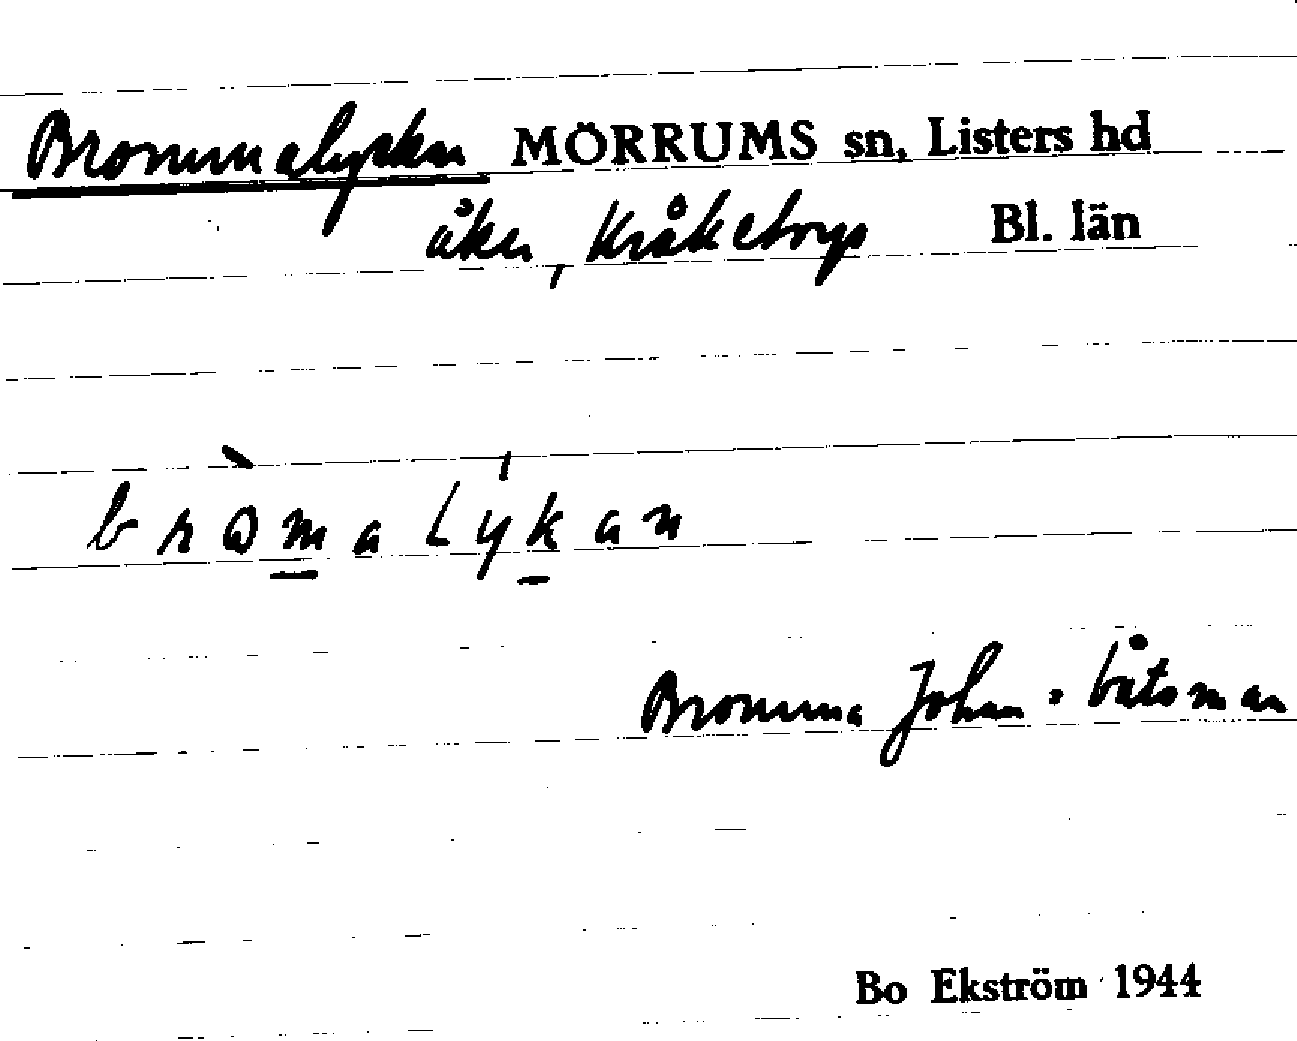 Brommalyckan MÖRRUMS sn, Listers hd
åker, Kråketorp Bl. län
bròmalýkan
Bromma Johan. båtsman
Bo Ekström 1944